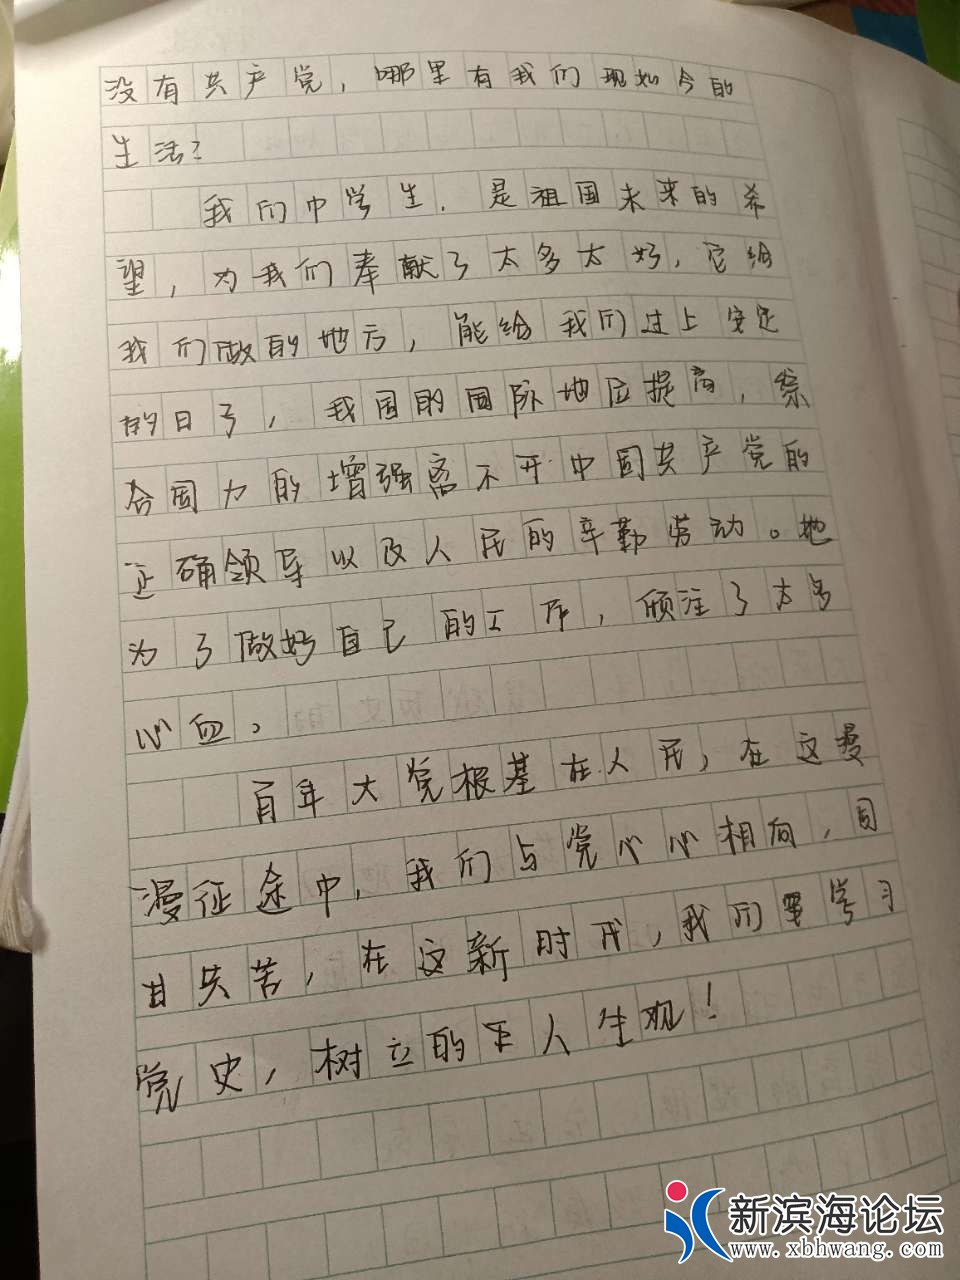 没有共产党，哪里有我们现如今的
生活？
我们中学生，是祖国未来的希
望，为我们奉献了太多太好，它给
我们做的地方，能给我们过上安定
的日子，我国的国际地位提高，综
合国力的增强离不开中国共产党的
正确领导以及人民的辛勤劳动。她
为了做好自己的工作，倾注了太多
心血。
百年大党根基在人民，在这漫
漫征途中，我们与党心心相向，同
甘共苦，在这新时代，我们要学习
党史，树立的正人生观！
新滨海论坛
www.xbhwang.com